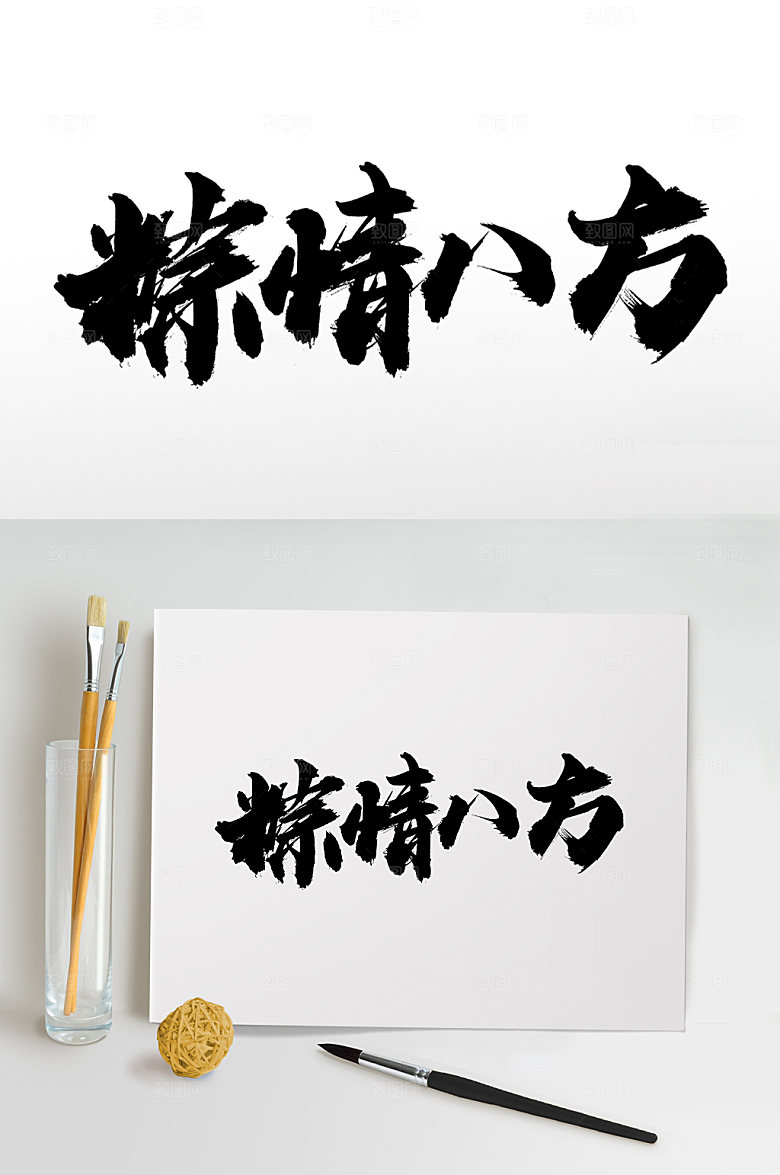 粽情八方
粽情八方